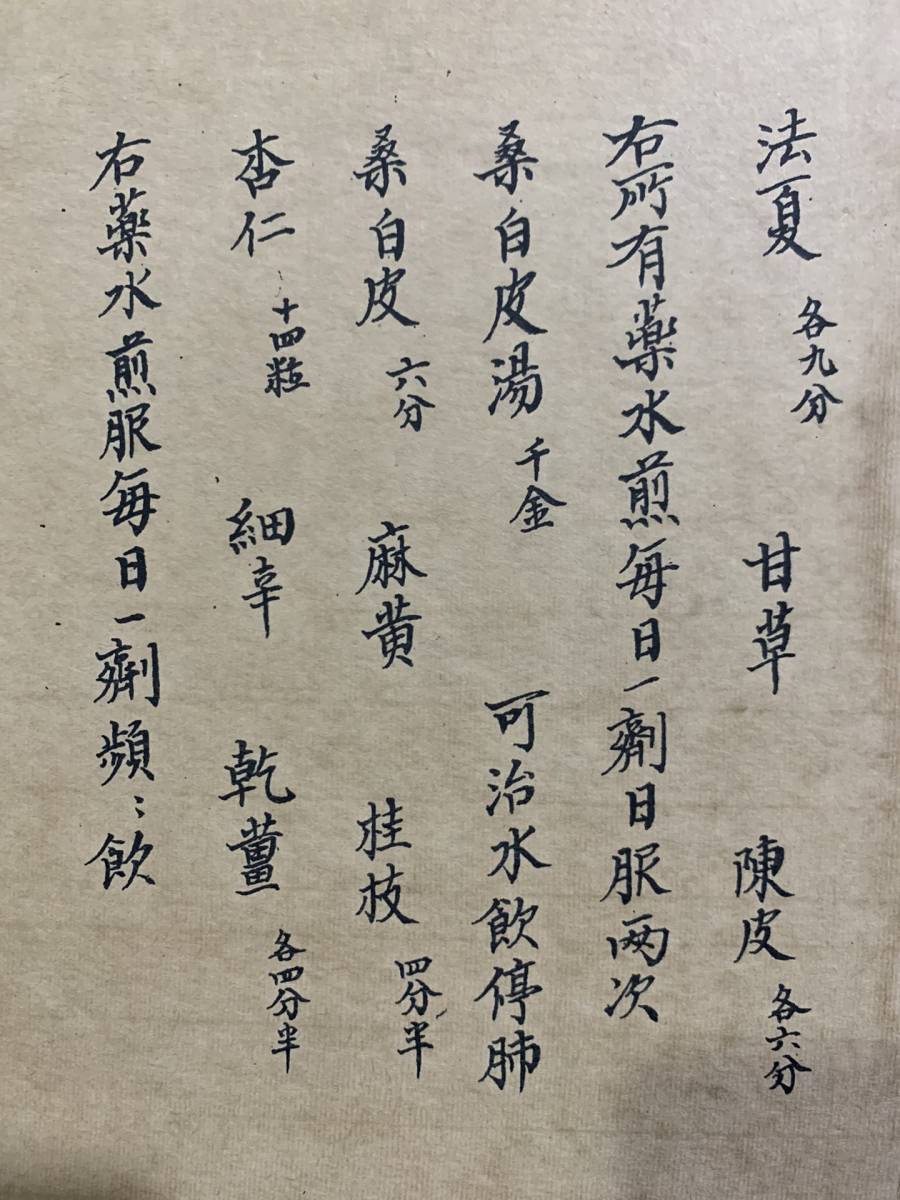 法夏 各九分 甘草 陳皮 各六分
右所有藥水煎每日一劑日服两次
桑白皮湯 千金 可治水飲停肺
桑白皮 六分 麻黄 桂枝 四分半
杏仁 十四粒 細辛 乾薑 各四分半
右藥水煎服每日一劑頻〻飲